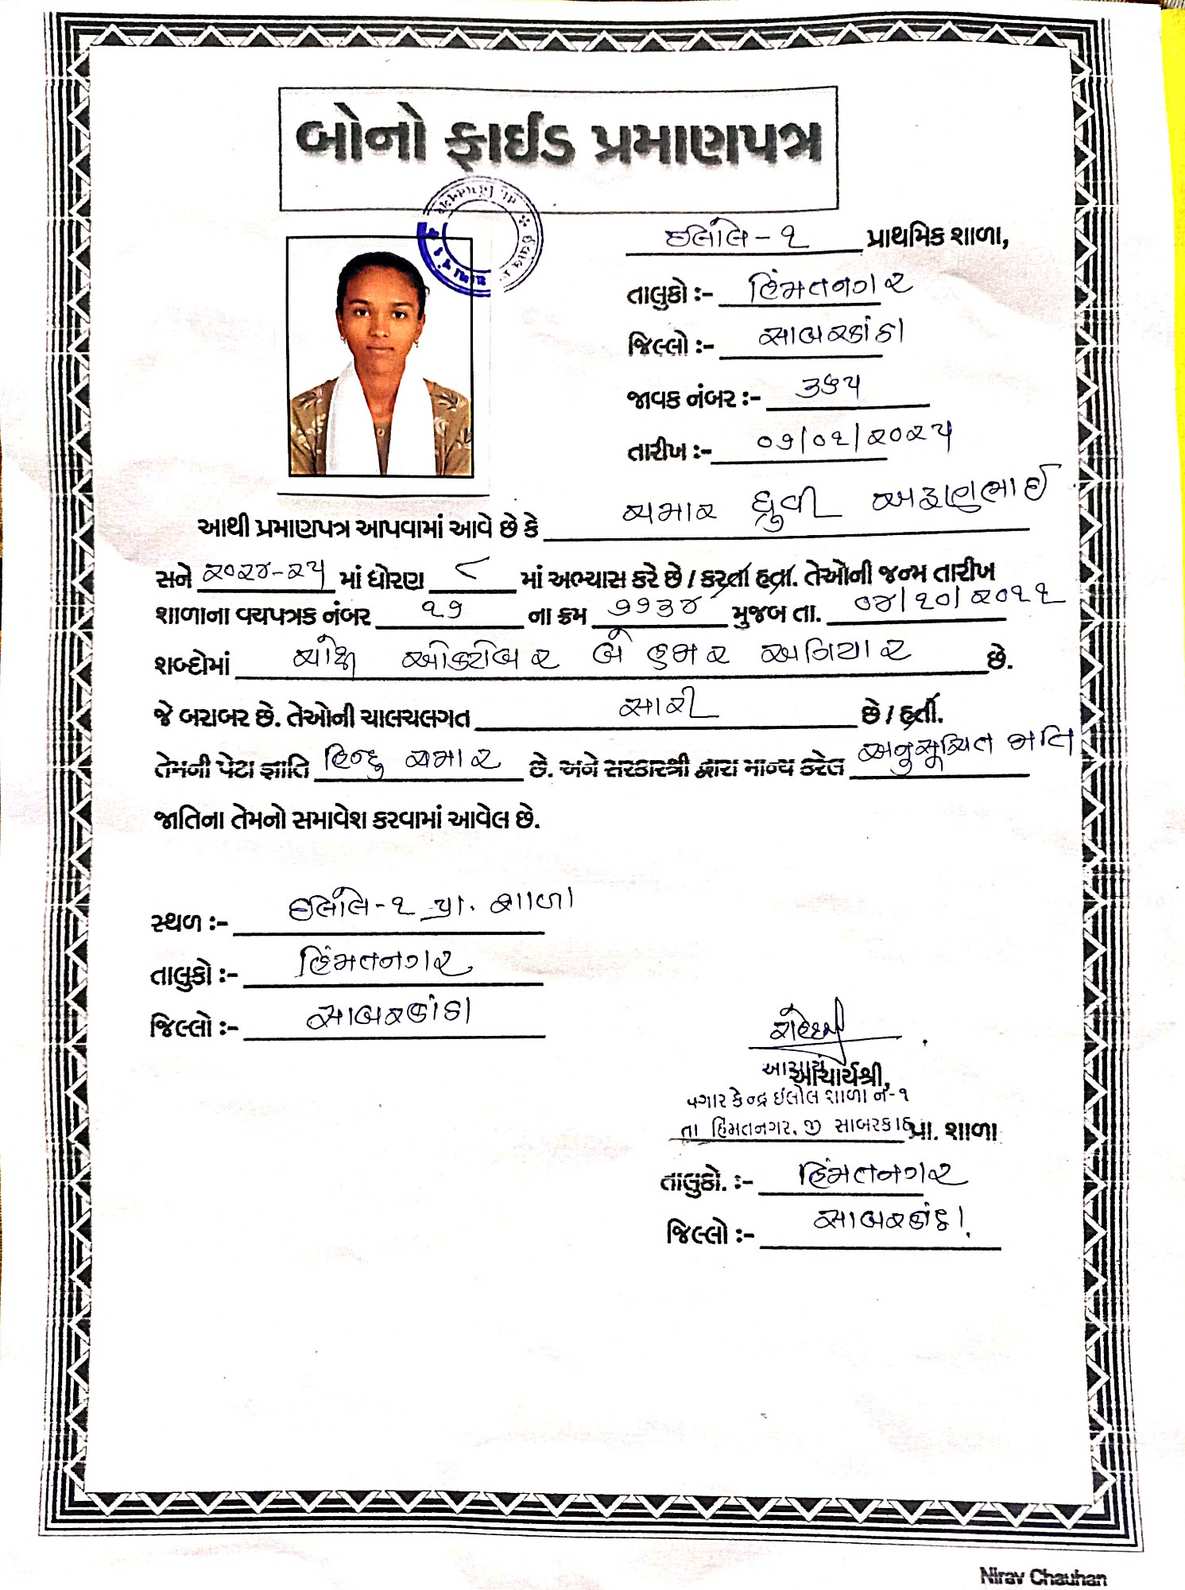 બોનો ફાઈડ પ્રમાણપત્ર
ઇલોલ - ૧ પ્રાથમિક શાળા,
તાલુકો :- હિંમતનગર
જિલ્લો :- સાબરકાંઠા
જાવક નંબર :- ૩૬૫
તારીખ :- ૦૭/૦૨/૨૦૨૫
આથી પ્રમાણપત્ર આપવામાં આવે છે કે ચમાર ધ્રુવી
સને ૨૦૨૪-૨૫ માં ધોરણ ૮ માં અભ્યાસ કરે છે / કરતા હતા. તેઓની જન્મ તારીખ
શાળાના વયપત્રક નંબર ૧૭ ના ક્રમ ૭૭૩૪ મુજબ તા. ૦૪/૧૦/૨૦૧૧
શબ્દોમાં ચોથી ઓક્ટોબર બે હજાર અગિયાર છે.
જે બરાબર છે. તેઓની ચાલચલગત સારી છે / હતી.
તેમની પેટા જ્ઞાતિ હિન્દુ ચમાર છે. અને સરકારશ્રી દ્વારા માન્ય કરેલ અનુસૂચિત જાતિ
જાતિના તેમનો સમાવેશ કરવામાં આવેલ છે.
સ્થળ :- ઇલોલ-૧ પ્રા. શાળા
તાલુકો :- હિંમતનગર
જિલ્લો :- સાબરકાંઠા
આચાર્ય
આચાર્યશ્રી,
પગાર કેન્દ્ર ઇલોલ શાળા નં-૧
તા હિંમતનગર, જી સાબરકાંઠા પ્રા. શાળા
તાલુકો. :- હિંમતનગર
જિલ્લો :- સાબરકાંઠા.
Nirav Chauhan